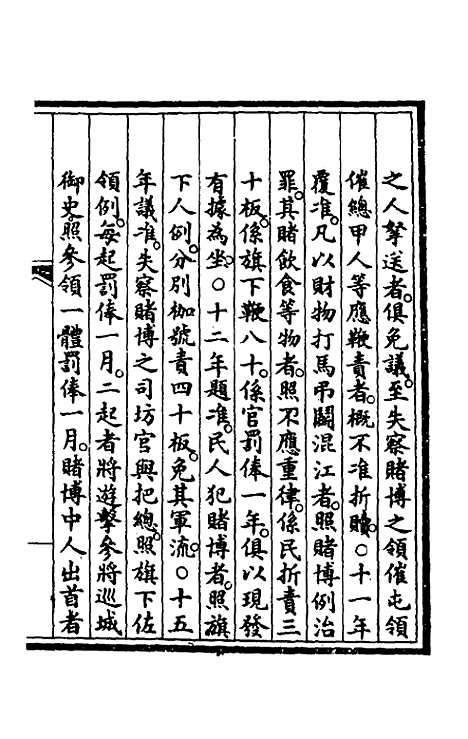 之人拏送者。俱免議。至失察賭博之領催屯領
催總甲人等應鞭責者。概不准折贖。○十一年
覆准。凡以財物打馬弔鬬混江者。照賭博例治
罪。其賭飲食等物者。照不應重律。係民折責三
十板。係旗下鞭八十。係官罰俸一年。俱以現發
有據為坐。○十二年題准。民人犯賭博者。照旗
下人例。分別枷號責四十板。免其軍流。○十五
年議准。失察賭博之司坊官與把總。照旗下佐
領例。每起罰俸一月。二起者將遊擊參將巡城
御史。照參領一體罰俸一月。賭博中人出首者